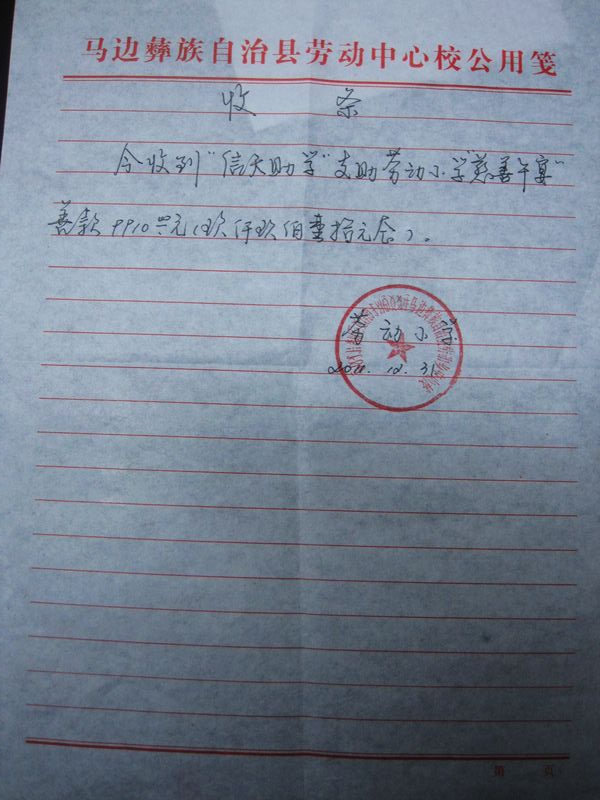 马边彝族自治县劳动中心校公用笺
收 条
今收到"信天助学"支助劳动小学"慈善午宴"
善款9910元(玖仟玖佰壹拾元
劳动小学
2011.12.31
第 页